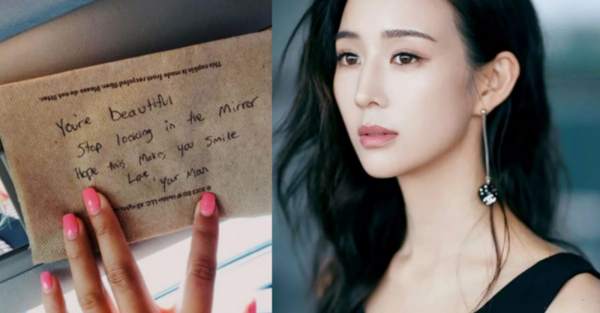 This napkin is made from recycled fibers. Please do not litter.
You're beautiful
Stop looking in the Mirror
Hope this Makes you Smile
Love your Man
DD IP Holder LLC. All rights